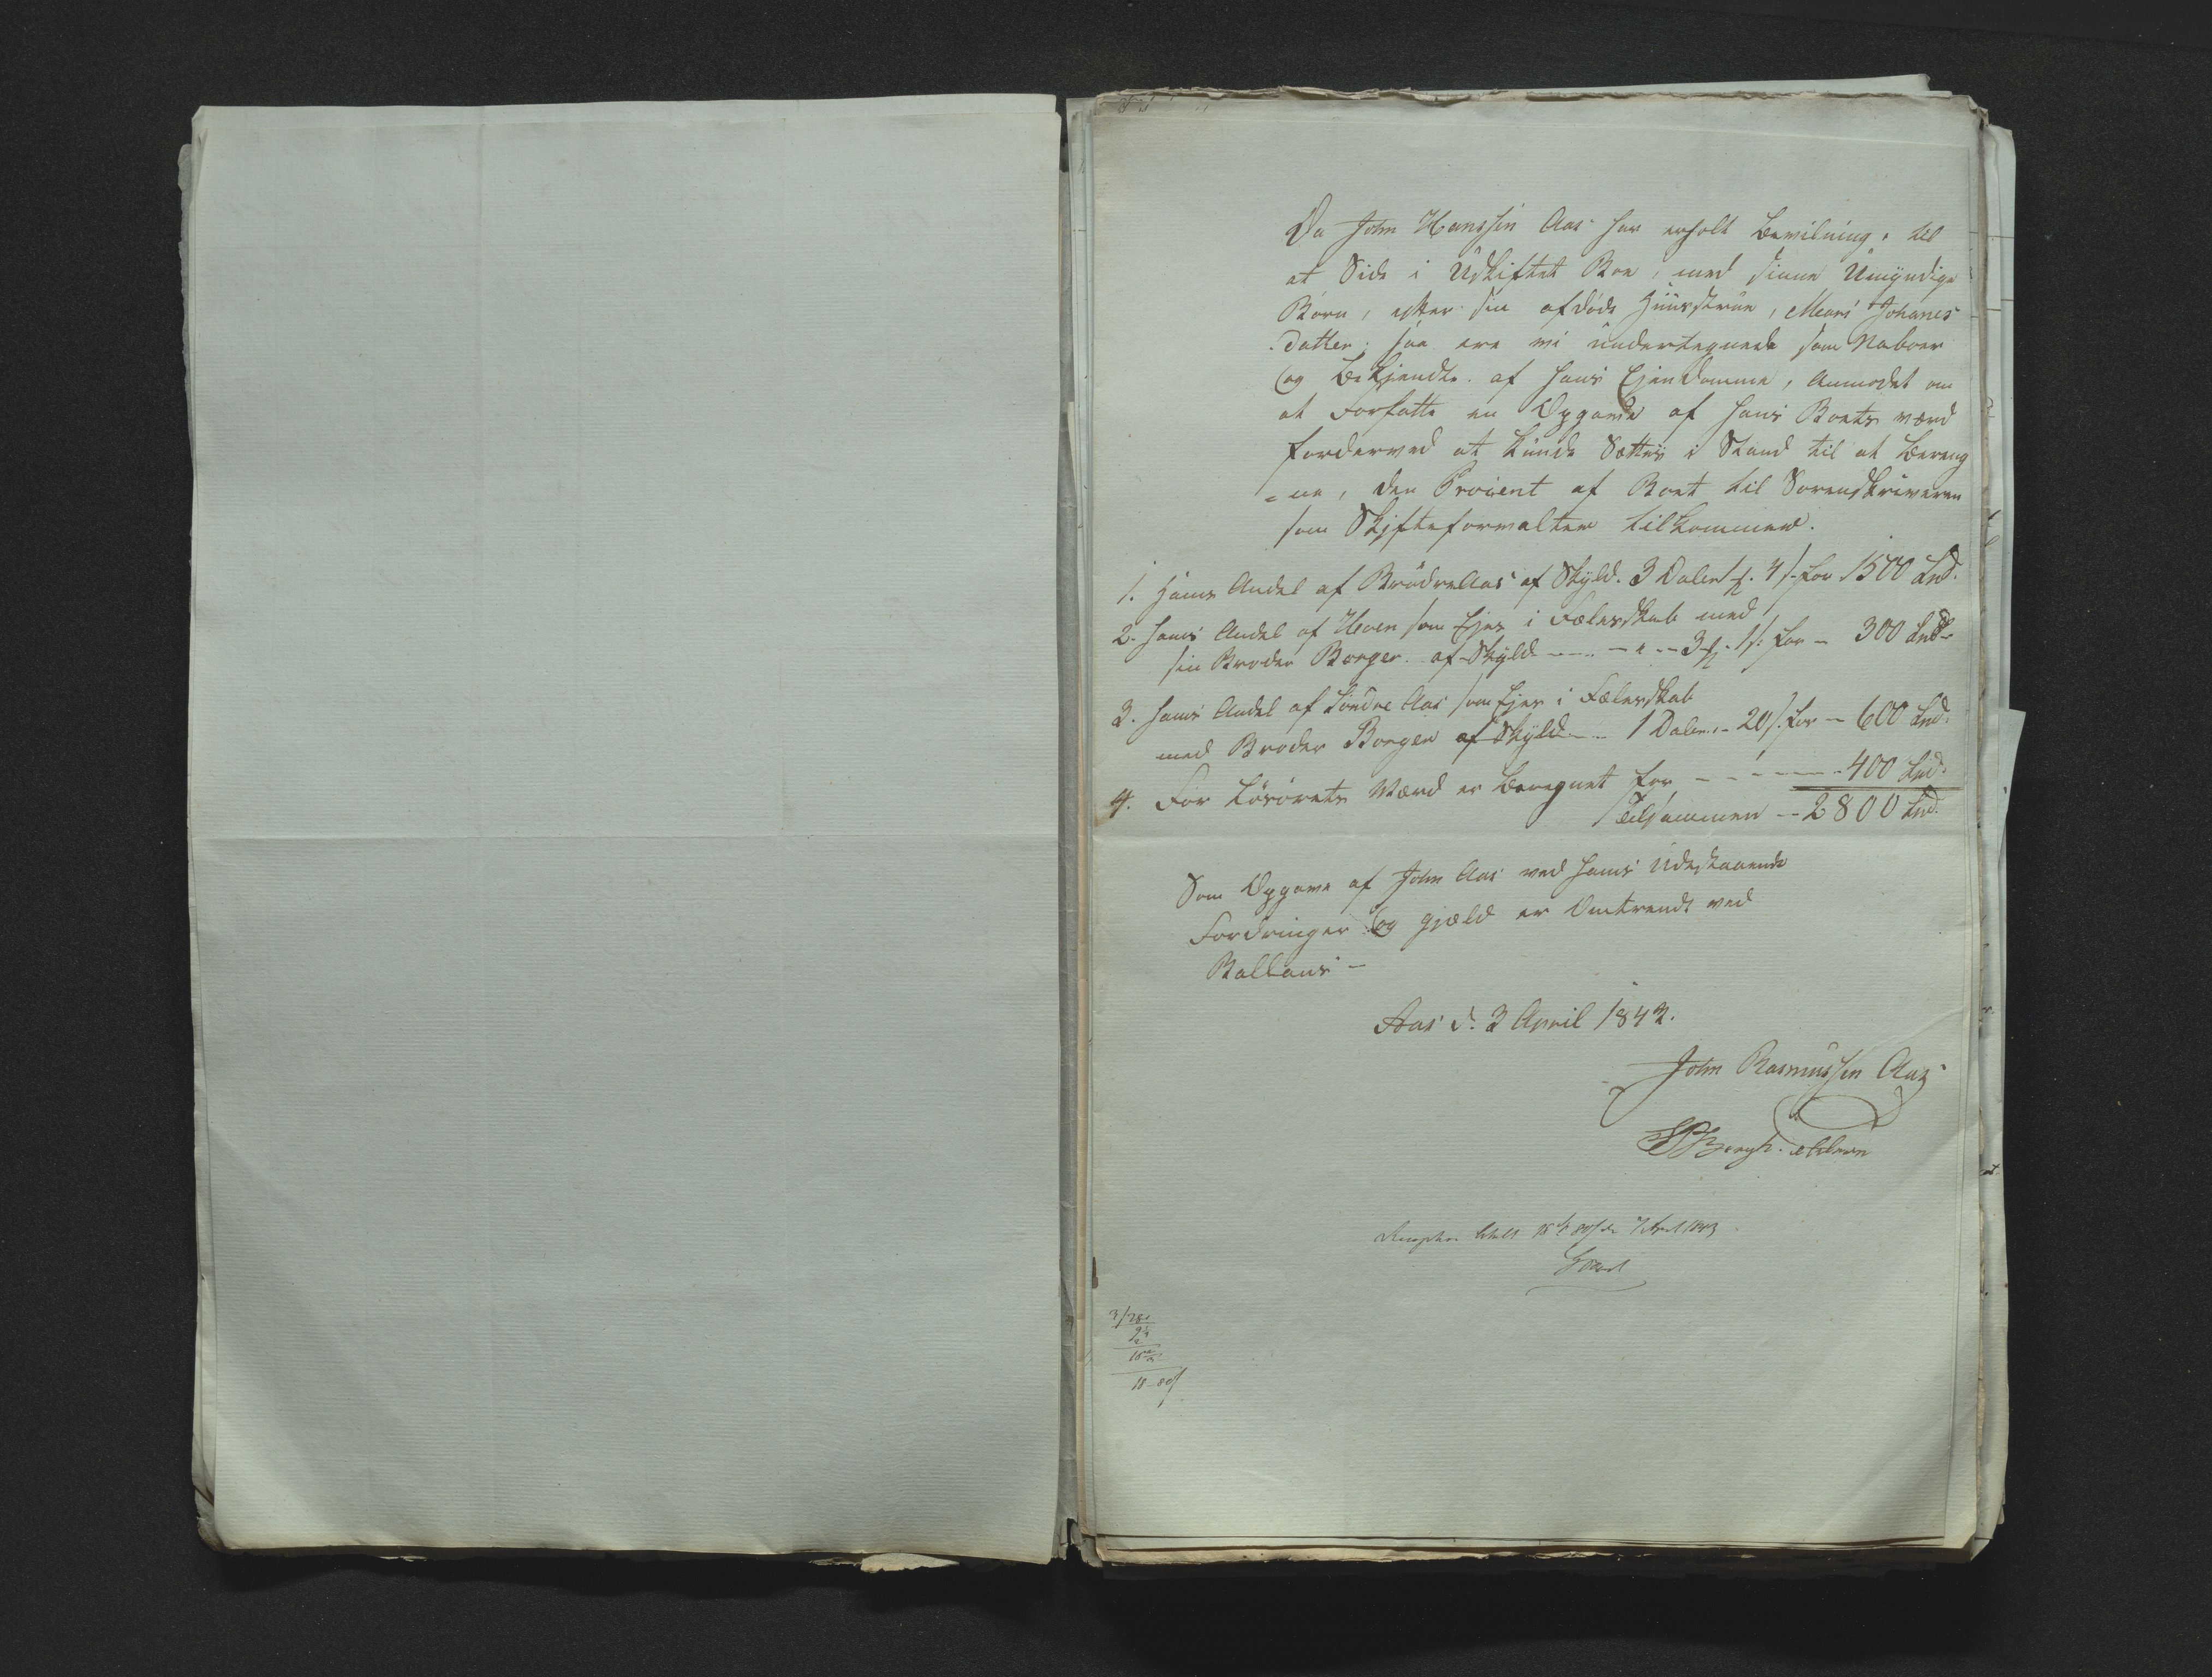 Da John Hanssen Aas har erholt Bevilning, til
at Side i Udskiftet Boe, med sinne Umyndige
Børn, efter sin afdøde Huusstrue, Mari Johanes
datter; saa ere vi undertegnede som Naboer
og Bekjendte af hans Ejendomme, Anmodet om
at Forfatte en Opgave af hans Boets værd
forderved at kunde Sættes i Stand til at bereng
=ne, den Procent af Boet til Sorenskriveren
som Skjfteforvalter tilkommer.
1. Hans Andel af BrødreAas af Skyld. 3 Daler 4 s. for 1500 Spd.
2. Hans Andel af som Ejes i Fælesskab med
sin Broder Borger. af Skyld - - - 3 1 s. for - 300 Spd.
3. Hans Andel af Søndre Aas som Ejes i Fælesskab
med Broder Borger af Skyld - - 1 Daler - 20 s. for - 600 Spd.
4. For Løsørets Værd er Beregnet for - - - - - 400 Spd.
Tilsammen - - 2800 Spd.
Som Opgave af John Aas ved hans Udestaaende
Fordringer og gjæld er Omtrendt ved
Ballans -
Aas d. 3 April 1843.
John Rasmussen Aas
April 1843
3/28
18 - 80 s